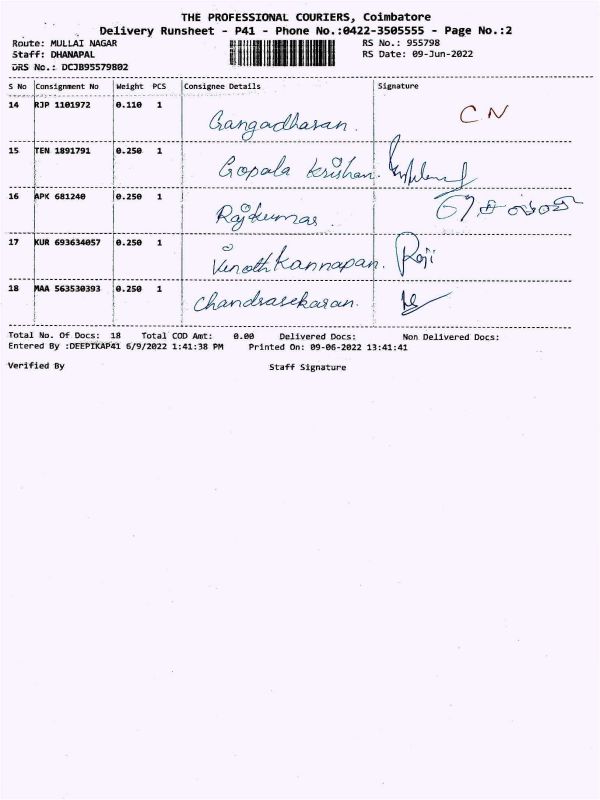 THE PROFESSIONAL COURIERS, Coimbatore
Delivery Runsheet - P41 - Phone No.:0422-3505555 - Page No.:2
Route: MULLAI NAGAR RS No.: 955798
Staff: DHANAPAL RS Date: 09-Jun-2022
DRS No.: DCJB95579802
S No Consignment No Weight PCS Consignee Details Signature
14 RJP 1101972 0.110 1 Gangadharan. CN
15 TEN 1891791 0.250 1 Gopala krishan.
16 APK 681240 0.250 1 Rajkumar
17 KUR 693634057 0.250 1 Vinoth Kannapan. Raji
18 MAA 563530393 0.250 1 Chandrasekaran.
Total No. Of Docs: 18 Total COD Amt: 0.00 Delivered Docs: Non Delivered Docs:
Entered By :DEEPIKAP41 6/9/2022 1:41:38 PM Printed On: 09-06-2022 13:41:41
Verified By Staff Signature